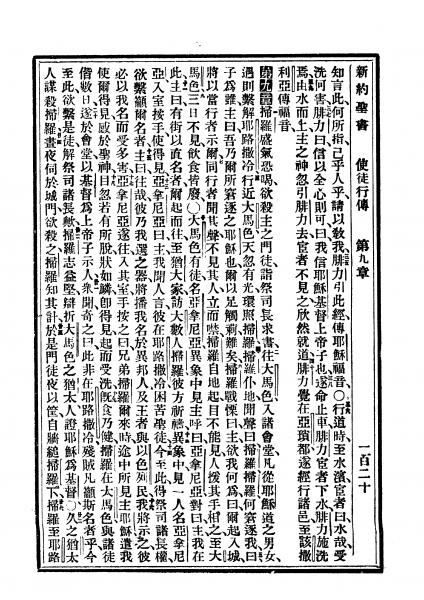 新約聖書 使徒行傳 第九章 一百二十
知言此何所指己乎人乎請以敎我腓力引此經傳耶穌福音○行道時至水濱宦者曰水哉受
洗何害腓力曰信以全心則可曰我信耶穌基督上帝子也遂命止車腓力宦者下水腓力施洗
焉由水而上主之神忽引腓力去宦者不見之欣然就道腓力覺在亞瑣都遂經行諸邑至該撒
利亞傳福音
第九章掃羅盛氣恐喝欲殺主之門徒詣祭司長求書往大馬色入諸會堂凡從耶穌道之男女
遇則繫解耶路撒冷行近大馬色天忽有光環照掃羅掃羅仆地聞聲曰掃羅掃羅何窘逐我曰
子爲誰主曰吾乃爾所窘逐之耶穌也爾以足觸刺難矣掃羅戰慄曰主欲我何爲曰爾起入城
將以當行者示爾同行者聞其聲不見其人立而噤掃羅自地起目不能見人扱其手相之至大
馬色三日不見飲食皆廢○大馬色有徒名亞拿尼亞異象中見主呼曰亞拿尼亞對曰主我在
此主曰有街以直名者爾起而往至猶大家訪大數人掃羅彼方祈禱異象中見一人名亞拿尼
亞入室按手使得見亞拿尼亞曰主我聞人言彼在耶路撒冷困苦聖徒今至此得祭司諸長權
欲繫籲爾名者主曰往哉彼乃我選之器將播我名於異邦人及王者與以色列民我將示之彼
必以我名而受多害亞拿尼亞遂往入其室手按之曰兄弟掃羅爾來時途中所見主耶穌遣我
使爾得見感於聖神目忽若有所脫狀如鱗卽得見起而受洗旣食乃健掃羅在大馬色與諸徒
偕數日遂於會堂以基督爲上帝子示人衆聞奇之曰此非在耶路撒冷殘賊凡籲斯名者乎今
至此欲繫是徒解祭司諸長歟掃羅志益堅辯折大馬色之猶太人證耶穌爲基督○久之猶太
人謀殺掃羅晝夜伺於城門欲殺之掃羅知其計於是門徒夜以筐自牆縋掃羅下掃羅至耶路